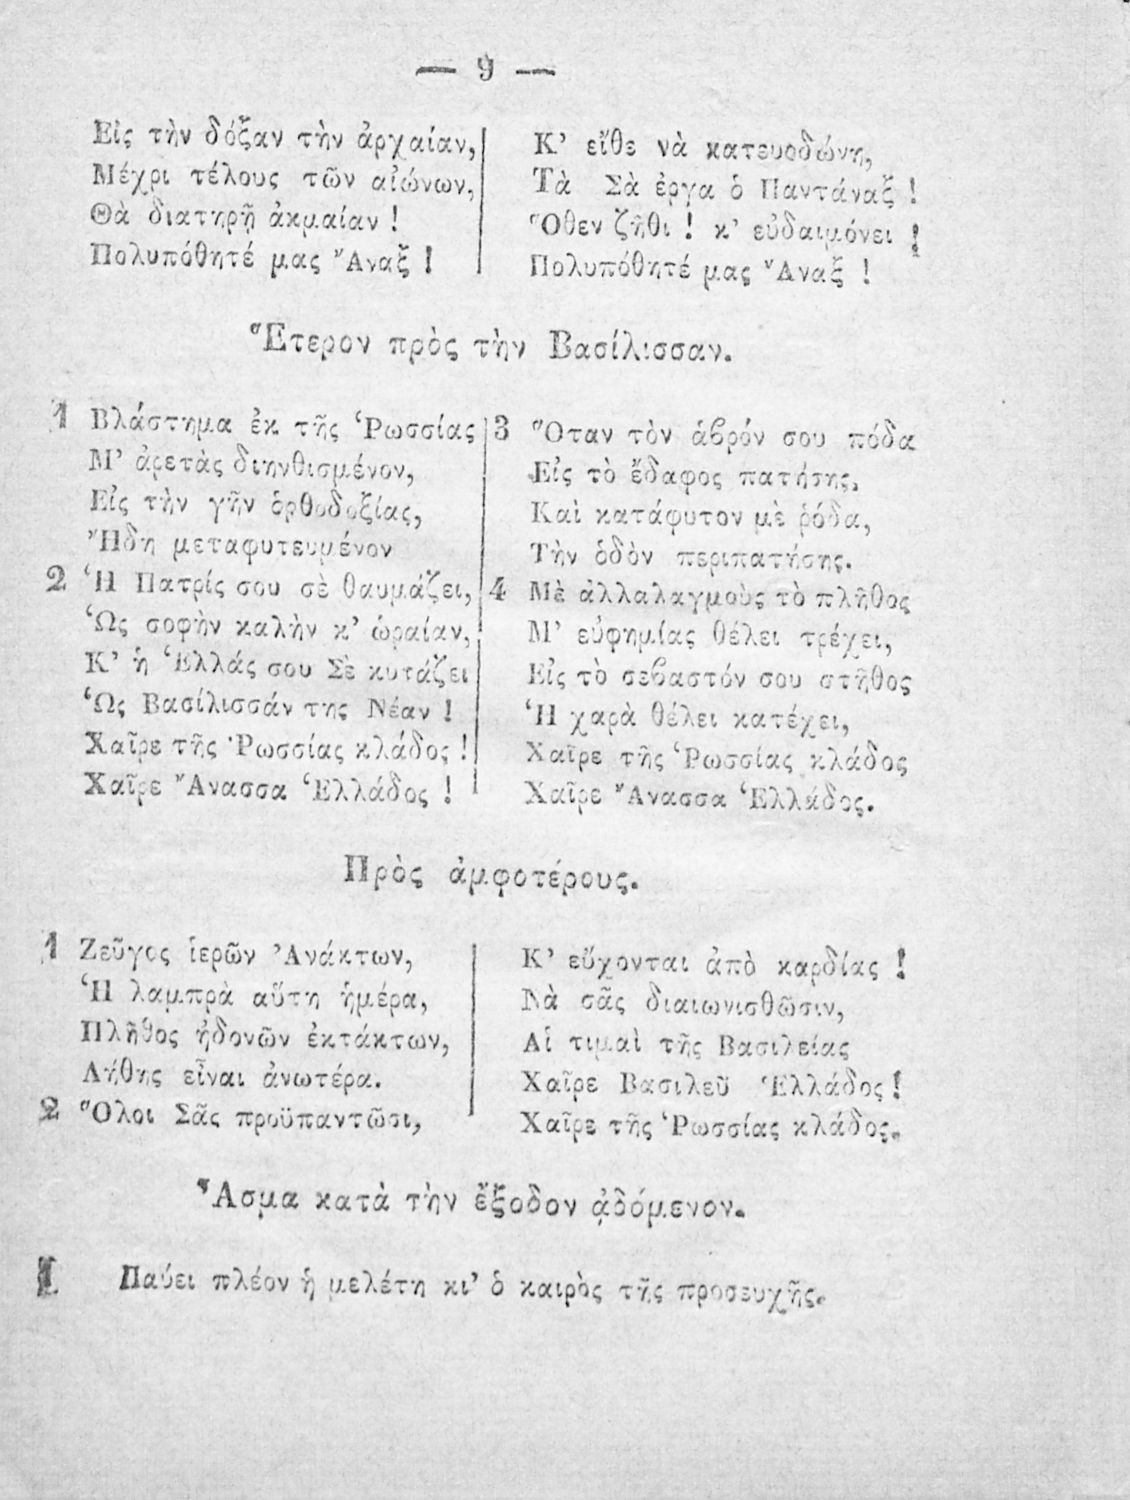 — 9 —
Εἰς τὴν δόξαν τὴν ἀρχαίαν,
Μέχρι τέλους τῶν αἰώνων,
Θὰ διατηρῇ ἀκμαίαν !
Πολυπόθητέ μας Ἄναξ !
Κ’ εἴθε νὰ κατευοδώνῃ,
Τὰ Σὰ ἐργα ὁ Παντάναξ !
Ὅθεν ζῆθι ! κ’ εὐδαιμόνει !
Πολυπόθητέ μας Ἄναξ !
Ἕτερον πρὸς τὴν Βασίλισσαν.
1 Βλάστημα ἐκ τῆς Ῥωσσίας
Μ’ ἀρετὰς διηνθισμένον,
Εἰς τὴν γῆν ὀρθοδοξίας,
Ἤδη μεταφυτευμένον
2 Ἡ Πατρίς σου σὲ θαυμάζει,
Ὡς σοφὴν καλὴν κ’ ὡραίαν,
Κ’ ἡ Ἑλλάς σου Σὲ κυτάζει
Ὡς Βασίλισσάν της Νέαν !
Χαῖρε τῆς Ῥωσσίας κλάδος !
Χαῖρε Ἄνασσα Ἑλλάδος !
3 Ὅταν τὸν ἁβρόν σου πόδα
Εἰς τὸ ἔδαφος πατήσῃς,
Καὶ κατάφυτον μὲ ῥόδα,
Τὴν ὁδὸν περιπατήσῃς.
4 Μὲ ἀλλαλαγμοὺς τὸ πλῆθος
Μ’ εὐφημίας θέλει τρέχει,
Εἰς τὸ σεβαστόν σου στῆθος
Ἡ χαρὰ θέλει κατέχει,
Χαῖρε τῆς Ῥωσσίας κλάδος
Χαῖρε Ἄνασσα Ἑλλάδος.
Πρὸς ἀμφοτέρους.
1 Ζεῦγος ἱερῶν Ἀνάκτων,
Ἡ λαμπρὰ αὕτη ἡμέρα,
Πλῆθος ἡδονῶν ἐκτάκτων,
Λήθης εἶναι ἀνωτέρα.
2 Ὅλοι Σᾶς προϋπαντῶσι,
Κ’ εὔχονται ἀπὸ καρδίας !
Νὰ σᾶς διαιωνισθῶσιν,
Αἱ τιμαὶ τῆς Βασιλείας
Χαῖρε Βασιλεῦ Ἑλλάδος !
Χαῖρε τῆς Ῥωσσίας κλάδος.
Ἆσμα κατὰ τὴν ἔξοδον ᾀδόμενον.
1 Παύει πλέον ἡ μελέτη κι’ ὁ καιρὸς τῆς προσευχῆς.